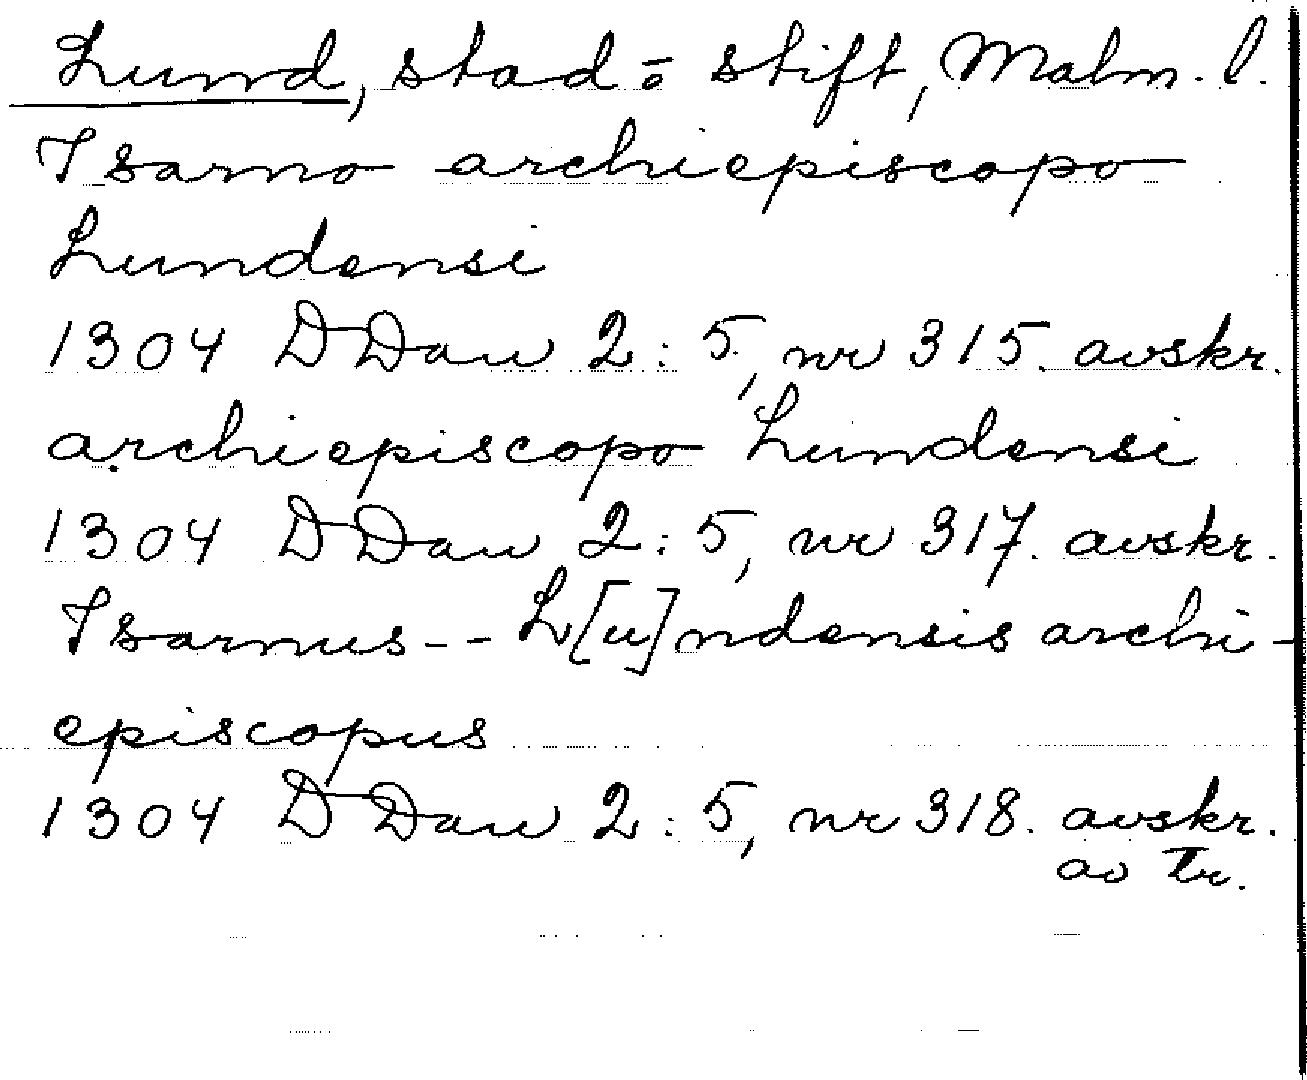 Lund, stad o stift, Malm. l.
Isarno archiepiscopo
Lundensi
1304 DDan 2:5, nr 315. avskr.
archiepiscopo Lundensi
1304 DDan 2:5, nr 317. avskr.
Isarnus -- L[u]ndensis archi-
episcopus
1304 DDan 2:5, nr 318. avskr.
av tr.